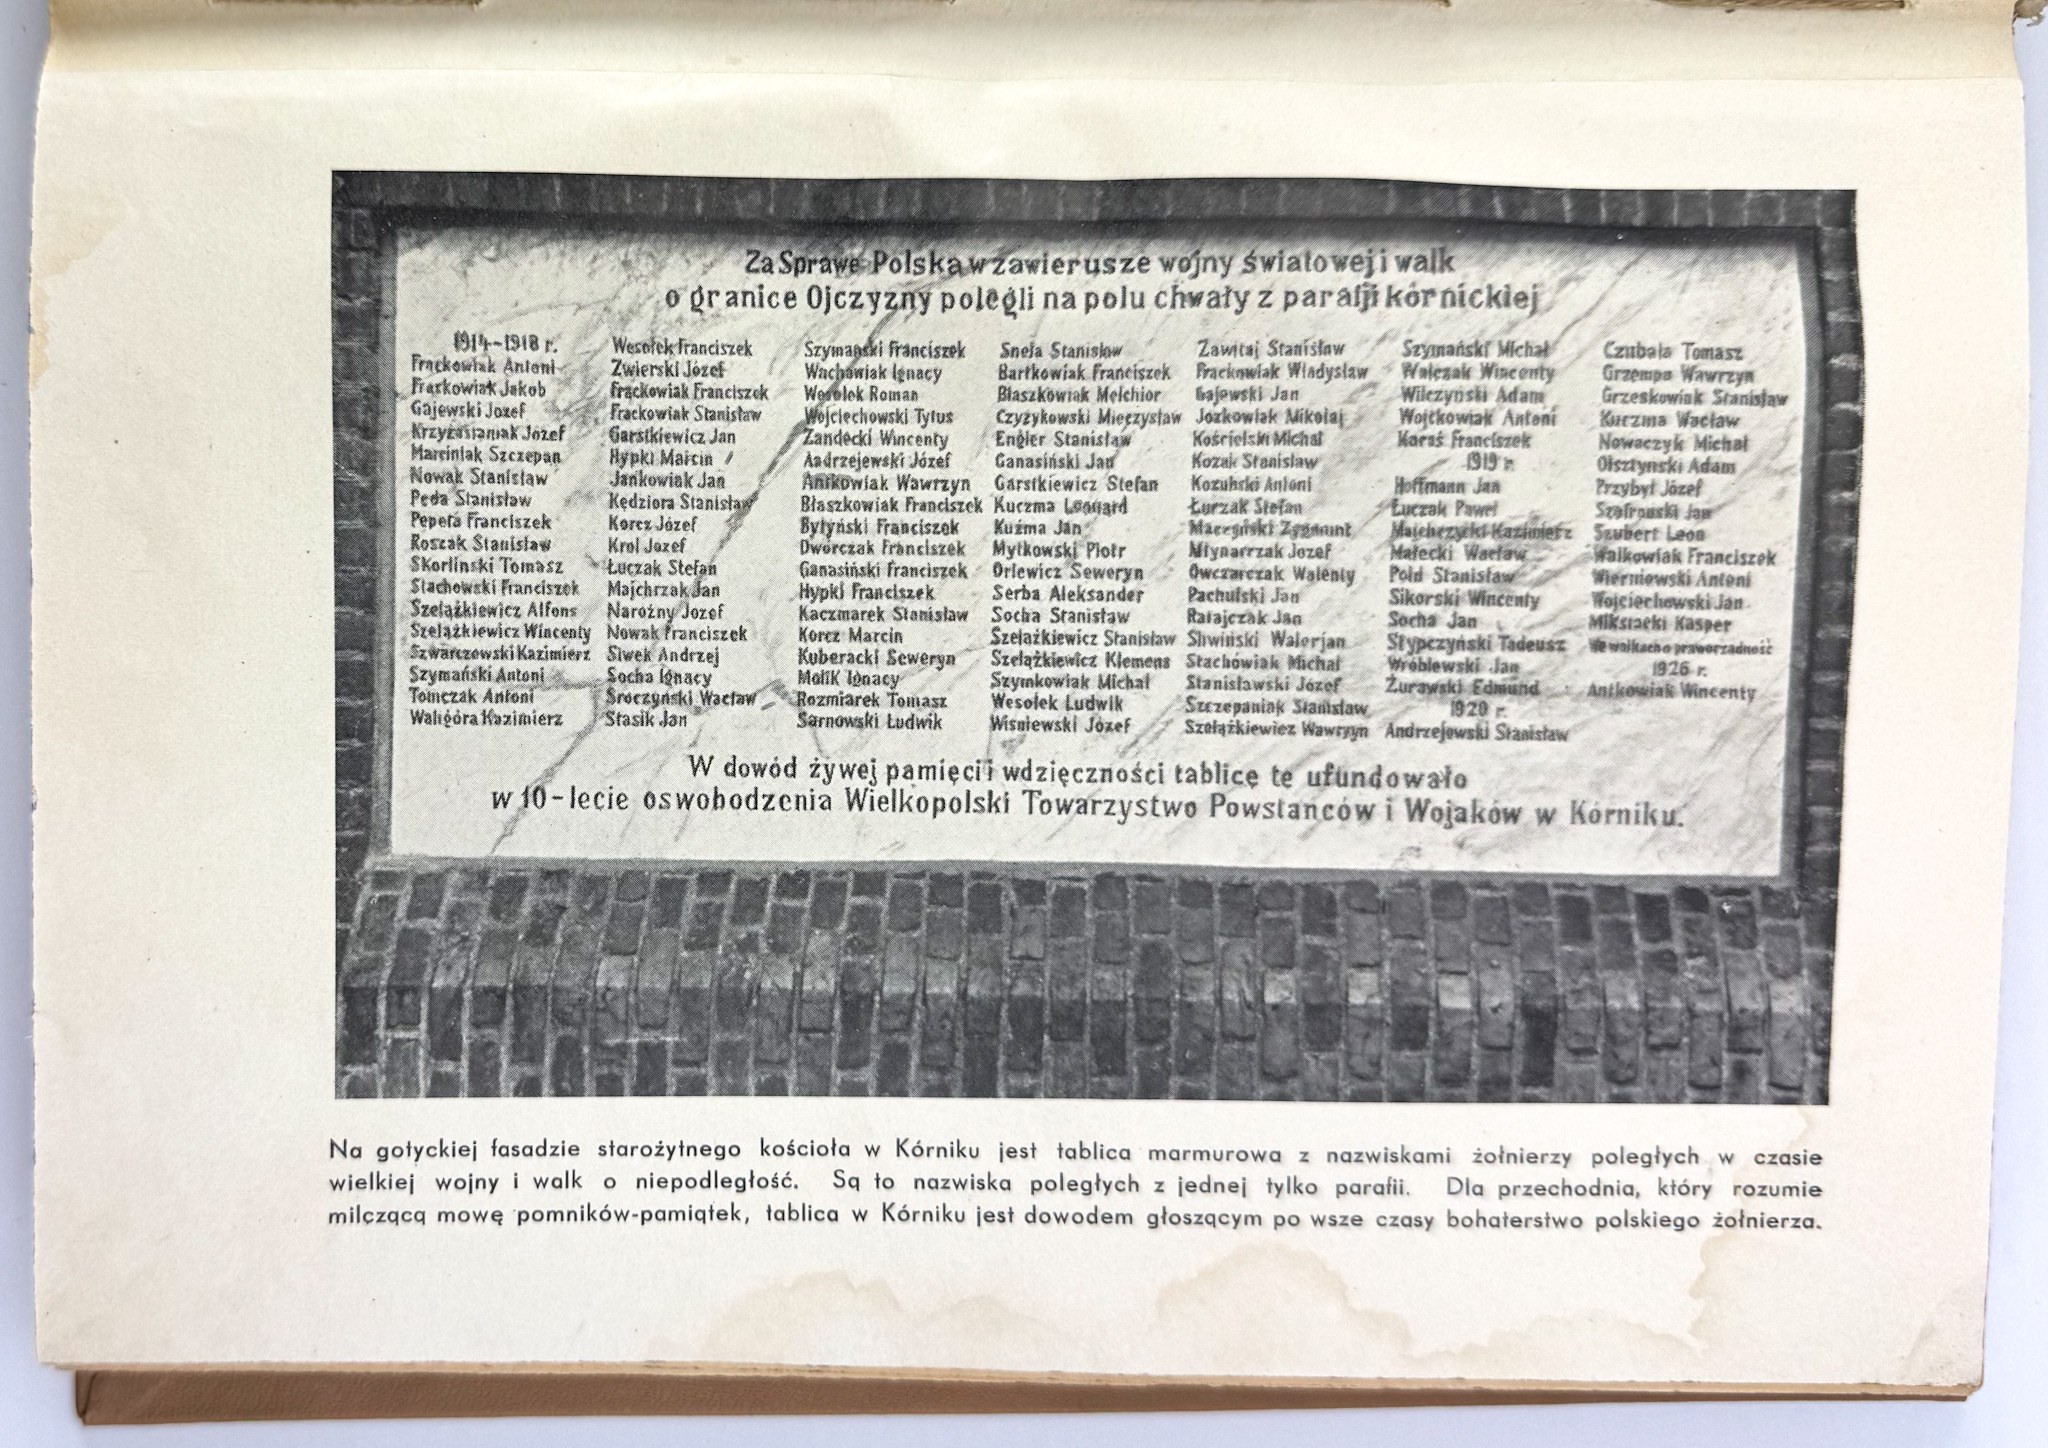 Za Sprawę Polską w zawierusze wojny światowej i walk
o granice Ojczyzny polegli na polu chwały z parafji kórnickiej
1914-1918 r.
Frąckowiak Antoni
Frąckowiak Jakob
Gajewski Jozef
Krzyżostaniak Józef
Marciniak Szczepan
Nowak Stanisław
Pęda Stanisław
Pepeta Franciszek
Roszak Stanisław
Skorlinski Tomasz
Stachowski Franciszek
Szelążkiewicz Alfons
Szelążkiewicz Wincenty
Szwarczewski Kazimierz
Szymański Antoni
Tomczak Antoni
Waligóra Kazimierz
Wesołek Franciszek
Zwierski Józef
Frąckowiak Franciszek
Frackowiak Stanisław
Garstkiewicz Jan
Hypki Marcin
Jankowiak Jan
Kędziora Stanisław
Korcz Józef
Krol Jozef
Łuczak Stefan
Majchrzak Jan
Narożny Jozef
Nowak Franciszek
Siwek Andrzej
Socha Ignacy
Sroczyński Wacław
Stasik Jan
Szymański Franciszek
Wachowiak Ignacy
Wesołek Roman
Wojciechowski Tytus
Zandecki Wincenty
Andrzejewski Józef
Antkowiak Wawrzyn
Błaszkowiak Franciszek
Bytyński Franciszek
Dworczak Franciszek
Ganasiński Franciszek
Hypki Franciszek
Kaczmarek Stanisław
Korcz Marcin
Kuberacki Seweryn
Molik Ignacy
Rozmiarek Tomasz
Sarnowski Ludwik
Sneła Stanisław
Bartkowiak Franciszek
Błaszkowiak Melchior
Czyżykowski Mieczysław
Engler Stanisław
Ganasiński Jan
Garstkiewicz Stefan
Kuczma Leonard
Kuźma Jan
Mytkowski Piotr
Orlewicz Seweryn
Serba Aleksander
Socha Stanisław
Szelążkiewicz Stanisław
Szelążkiewicz Klemens
Szymkowiak Michał
Wesołek Ludwik
Wiśniewski Józef
Zawitaj Stanisław
Frąckowiak Władysław
Gajewski Jan
Jozkowiak Mikołaj
Kościelski Michał
Kozak Stanisław
Kozuhski Antoni
Łurzak Stefan
Maczyński Zygmunt
Młynarczak Jozef
Owczarczak Walenty
Pachulski Jan
Ratajczak Jan
Śliwiński Walerjan
Stachowiak Michał
Stanisławski Józef
Szczepaniak Stanisław
Szelążkiewicz Wawrzyn
Szymański Michał
Walczak Wincenty
Wilczyński Adam
Wojtkowiak Antoni
Karaś Franciszek
1919 r.
Hoffmann Jan
Łuczak Paweł
Majchrzycki Kazimierz
Małecki Wacław
Pold Stanisław
Sikorski Wincenty
Socha Jan
Stypczyński Tadeusz
Wróblewski Jan
Żurawski Edmund
1920 r.
Andrzejewski Stanisław
Czubała Tomasz
Grzempa Wawrzyn
Grześkowiak Stanisław
Kuczma Wacław
Nowaczyk Michał
Olsztyński Adam
Przybył Józef
Szafrański Jan
Szubert Leon
Walkowiak Franciszek
Wierniewski Antoni
Wojciechowski Jan
Miksiacki Kasper
We walkach o praworządność
1926 r.
Antkowiak Wincenty
W dowód żywej pamięci i wdzięczności tablicę tę ufundowało
w 10-lecie oswobodzenia Wielkopolski Towarzystwo Powstańców i Wojaków w Kórniku.
Na gotyckiej fasadzie starożytnego kościoła w Kórniku jest tablica marmurowa z nazwiskami żołnierzy poległych w czasie
wielkiej wojny i walk o niepodległość. Są to nazwiska poległych z jednej tylko parafii. Dla przechodnia, który rozumie
milczącą mowę pomników-pamiątek, tablica w Kórniku jest dowodem głoszącym po wsze czasy bohaterstwo polskiego żołnierza.